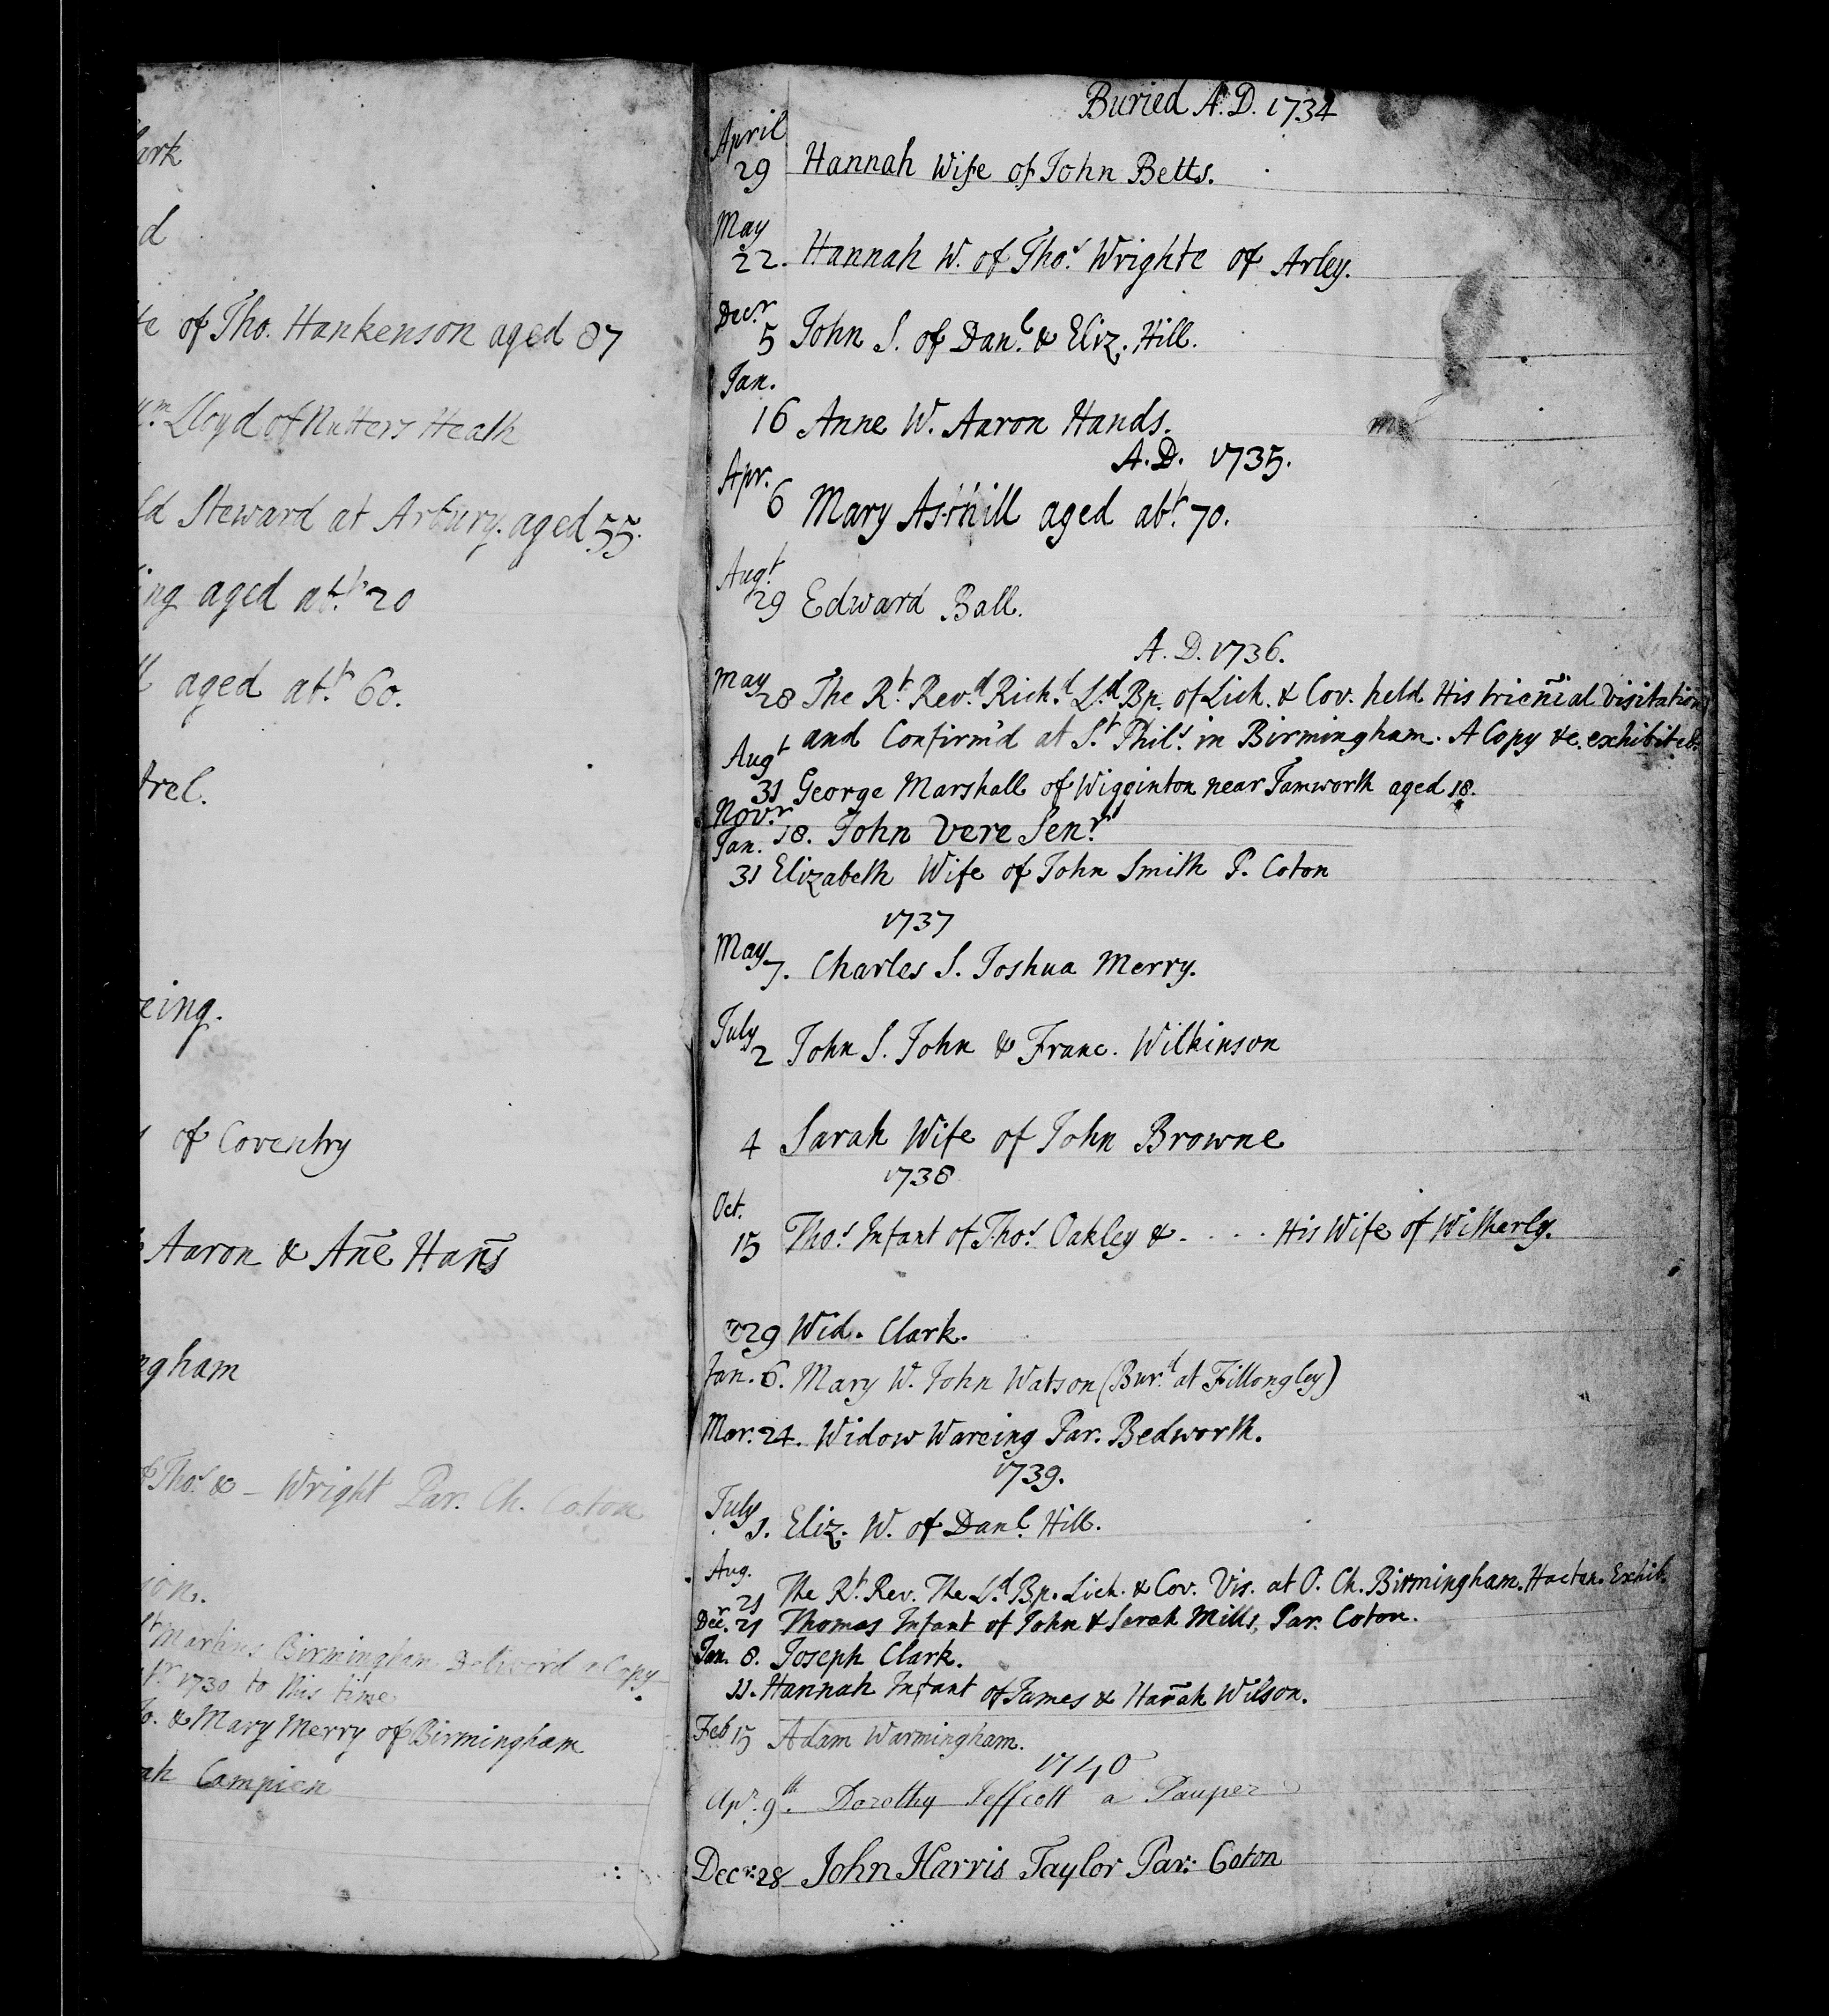 ark
d
of Tho. Hankenson aged 87
Lloyd of Nutters Heath
ld Steward at Arbury. aged 55.
ing aged abt. 20
aged abt. 60.
trel.
eing.
of Coventry
Aaron & Añe Hañs
ngham
Thos. & - Wright Par. Ch. Coton
ion.
St Martins Birmingham Deliver'd a Copy
1730 to this time
Jo. & Mary Merry of Birmingham
ah Campion
Buried A.D. 1734
April
29 Hannah Wife of John Betts.
May
22. Hannah W. of Thos. Wrighte of Arley.
Decr.
5 John S. of Danl. & Eliz. Hill.
Jan.
16 Anne W. Aaron Hands.
A.D. 1735.
Apr.
6 Mary Asthill aged abt. 70.
Augt.
29 Edward Ball.
A.D. 1736.
May
28 The Rt. Revd. Richd. Ld. Bp. of Lich. & Cov. held His trieñial Visitation
and Confirm'd at St. Phils. in Birmingham. A Copy &c. exhibited.
Augt
31 George Marshall of Wigginton near Tamworth aged 18.
Novr.
18. John Vere Senr.
Jan.
31 Elizabeth Wife of John Smith P. Coton
1737
May
7. Charles S. Joshua Merry.
July
2 John S. John & Franc. Wilkinson
4 Sarah Wife of John Browne
1738
Oct.
15 Thos. Infant of Thos. Oakley & . . . . His Wife of Witherly.
29 Wid. Clark.
Jan. 6. Mary W. John Watson (Burd. at Fillongley)
Mar. 24. Widow Wareing Par. Bedworth.
1739.
July
1. Eliz. W. of Danl. Hill.
Aug.
21 The Rt. Rev. The Ld. Bp. Lich. & Cov. Vis. at O. Ch. Birmingham. Hacten. Exhib.
Decr. 21 Thomas Infant of John & Sarah Mills, Par. Coton.
Jan. 8. Joseph Clark.
11. Hannah Infant of James & Hañah Wilson.
Feb 15 Adam Warmingham.
1740
Apr. 9th. Dorothy Jeffcott a Pauper
Decr. 28 John Harris Taylor Par: Coton